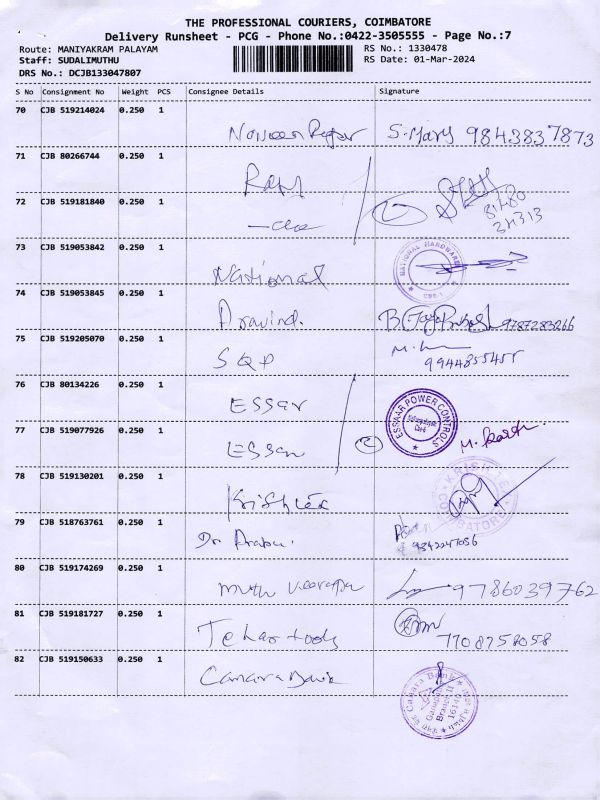 THE PROFESSIONAL COURIERS, COIMBATORE
Delivery Runsheet - PCG - Phone No.:0422-3505555 - Page No.:7
Route: MANIYAKRAM PALAYAM RS No.: 1330478
Staff: SUDALIMUTHU RS Date: 01-Mar-2024
DRS No.: DCJB133047807
S No Consignment No Weight PCS Consignee Details Signature
70 CJB 519214024 0.250 1
S. Mary 9843837873
71 CJB 80266744 0.250 1
Ram
72 CJB 519181840 0.250 1
73 CJB 519053842 0.250 1
National NATIONAL HARDWARE
74 CJB 519053845 0.250 1
Aravind. 9787283266
75 CJB 519205070 0.250 1
SQP 9944855455
76 CJB 80134226 0.250 1
ESSar ESSAAR POWER CONTROLS
77 CJB 519077926 0.250 1
ESSar 2
78 CJB 519130201 0.250 1
COIMBATORE
79 CJB 518763761 0.250 1
Dr. Prabu. 9342247056
80 CJB 519174269 0.250 1
Muthu Veerappa 9786039762
81 CJB 519181727 0.250 1
7708758058
82 CJB 519150633 0.250 1
Canara Bank Canara Bank